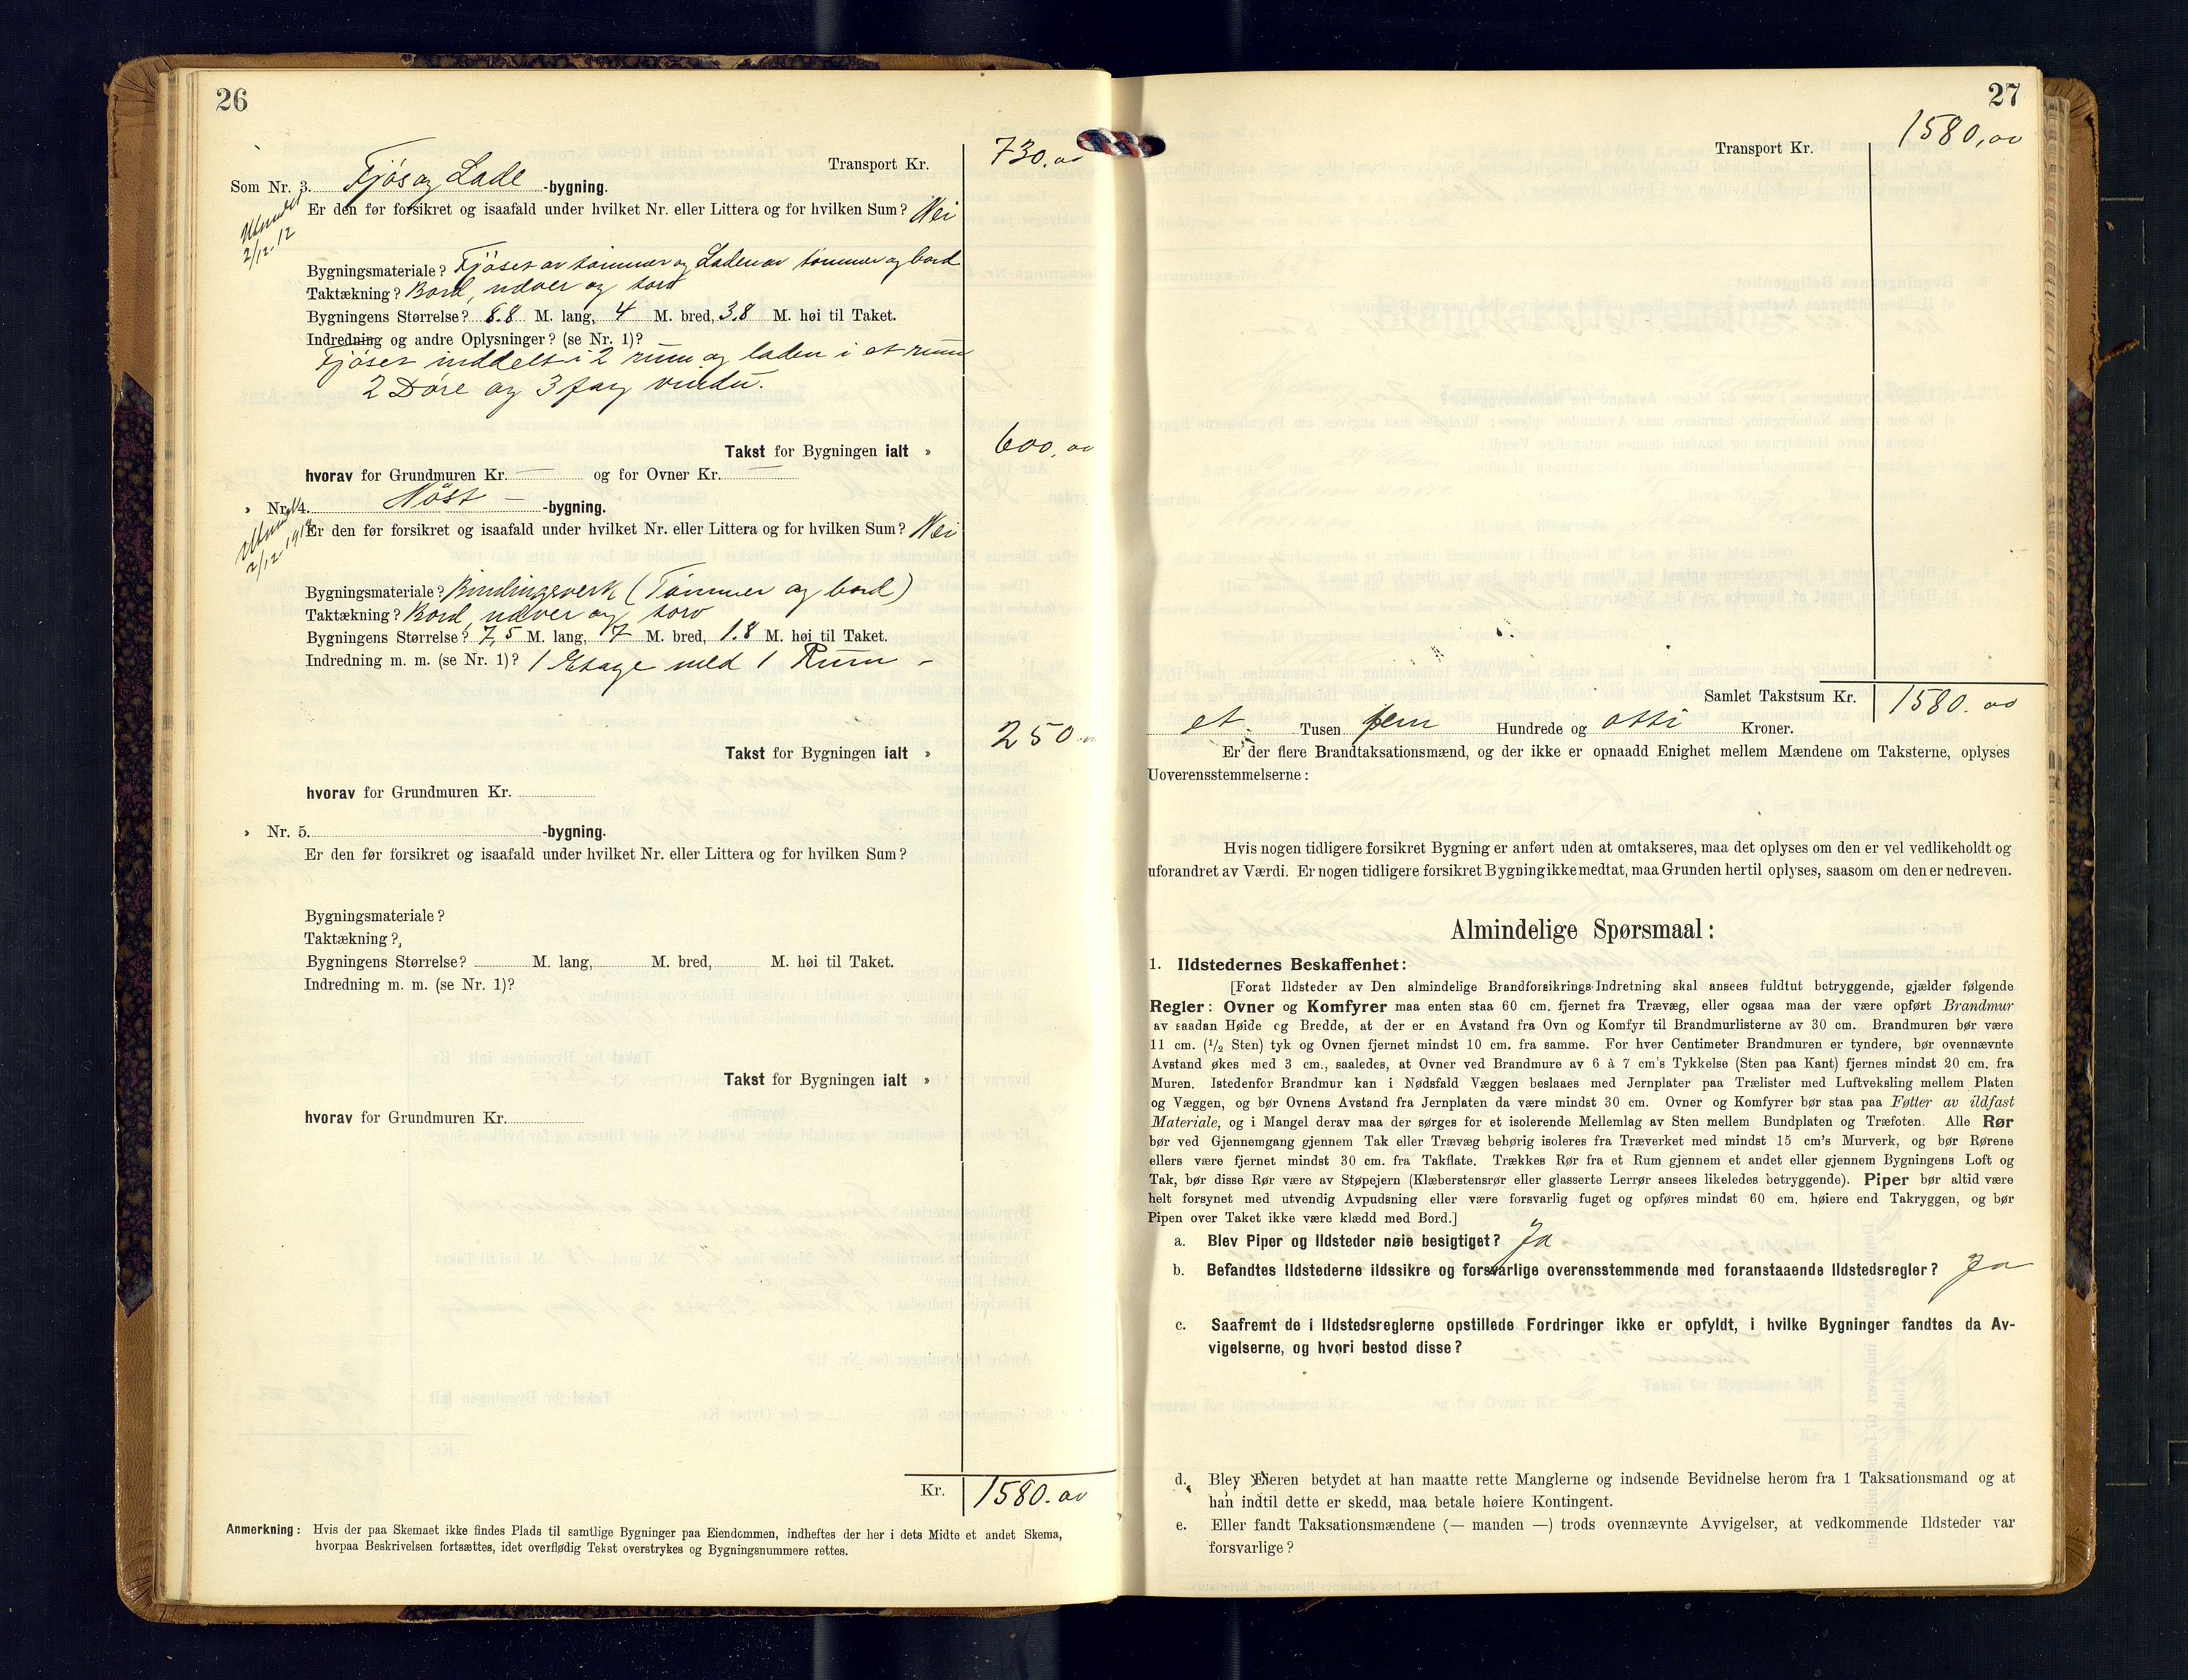 26
Transport Kr. 730.00
Som Nr. 3. Fjøs og Lade -bygning.
Er den før forsikret og isaafald under hvilket Nr. eller Littera og for hvilken Sum? Nei
2/12.12
Bygningsmateriale? Fjøset av tømmer og Laden av tømmer og bord
Taktækning? Bord, næver og torv
Bygningens Størrelse? 8.8 M. lang, 4 M. bred, 3.8 M. høi til Taket.
Indredning og andre Oplysninger? (se Nr. 1)?
Fjøset inddelt i 2 rum og laden i et rum
2 Døre og 3 fag vindu.
Takst for Bygningen ialt » 600,00
hvorav for Grundmuren Kr. — og for Ovner Kr. —
» Nr. 4. Nøst — -bygning.
Er den før forsikret og isaafald under hvilket Nr. eller Littera og for hvilken Sum? Nei
2/12.1912
Bygningsmateriale? Bindingsverk (Tømmer og bord)
Taktækning? Bord, næver og torv
Bygningens Størrelse? 7,5 M. lang, 7 M. bred, 1.8 M. høi til Taket.
Indredning m. m. (se Nr. 1)? 1 Etage med 1 Rum –
Takst for Bygningen ialt » 250.00
hvorav for Grundmuren Kr.
» Nr. 5. -bygning.
Er den før forsikret og isaafald under hvilket Nr. eller Littera og for hvilken Sum?
Bygningsmateriale?
Taktækning?
Bygningens Størrelse? M. lang, M. bred, M. høi til Taket.
Indredning m. m. (se Nr. 1)?
Takst for Bygningen ialt »
hvorav for Grundmuren Kr.
Kr. 1580.00
Anmerkning: Hvis der paa Skemaet ikke findes Plads til samtlige Bygninger paa Eiendommen, indheftes der her i dets Midte et andet Skema,
hvorpaa Beskrivelsen fortsættes, idet overflødig Tekst overstrykes og Bygningsnummere rettes.
27
Transport Kr. 1580,00
Samlet Takstsum Kr. 1580.00
et Tusen fem Hundrede og otti Kroner.
Er der flere Brandtaksationsmænd, og der ikke er opnaadd Enighet mellem Mændene om Taksterne, oplyses
Uoverensstemmelserne:
Hvis nogen tidligere forsikret Bygning er anført uden at omtakseres, maa det oplyses om den er vel vedlikeholdt og
uforandret av Værdi. Er nogen tidligere forsikret Bygning ikke medtat, maa Grunden hertil oplyses, saasom om den er nedreven.
Almindelige Spørsmaal:
1. Ildstedernes Beskaffenhet:
[Forat Ildsteder av Den almindelige Brandforsikrings-Indretning skal ansees fuldtut betryggende, gjælder følgende
Regler: Ovner og Komfyrer maa enten staa 60 cm. fjernet fra Trævæg, eller ogsaa maa der være opført Brandmur
av saadan Høide og Bredde, at der er en Avstand fra Ovn og Komfyr til Brandmurlisterne av 30 cm. Brandmuren bør være
11 cm. (1/2 Sten) tyk og Ovnen fjernet mindst 10 cm. fra samme. For hver Centimeter Brandmuren er tyndere, bør ovennævnte
Avstand økes med 3 cm., saaledes, at Ovner ved Brandmure av 6 à 7 cm's Tykkelse (Sten paa Kant) fjernes mindst 20 cm. fra
Muren. Istedenfor Brandmur kan i Nødsfald Væggen beslaaes med Jernplater paa Trælister med Luftveksling mellem Platen
og Væggen, og bør Ovnens Avstand fra Jernplaten da være mindst 30 cm. Ovner og Komfyrer bør staa paa Føtter av ildfast
Materiale, og i Mangel derav maa der sørges for et isolerende Mellemlag av Sten mellem Bundplaten og Træfoten. Alle Rør
bør ved Gjennemgang gjennem Tak eller Trævæg behørig isoleres fra Træverket med mindst 15 cm's Murverk, og bør Rørene
ellers være fjernet mindst 30 cm. fra Takflate. Trækkes Rør fra et Rum gjennem et andet eller gjennem Bygningens Loft og
Tak, bør disse Rør være av Støpejern (Klæberstensrør eller glasserte Lerrør ansees likeledes betryggende). Piper bør altid være
helt forsynet med utvendig Avpudsning eller være forsvarlig fuget og opføres mindst 60 cm. høiere end Takryggen, og bør
Pipen over Taket ikke være klædd med Bord.]
a. Blev Piper og Ildsteder nøie besigtiget? Ja
b. Befandtes Ildstederne ildssikre og forsvarlige overensstemmende med foranstaaende Ildstedsregler? Ja
c. Saafremt de i Ildstedsreglerne opstillede Fordringer ikke er opfyldt, i hvilke Bygninger fandtes da Av-
vigelserne, og hvori bestod disse?
d. Blev Eieren betydet at han maatte rette Manglerne og indsende Bevidnelse herom fra 1 Taksationsmand og at
han indtil dette er skedd, maa betale høiere Kontingent.
e. Eller fandt Taksationsmændene (— manden —) trods ovennævnte Avvigelser, at vedkommende Ildsteder var
forsvarlige?